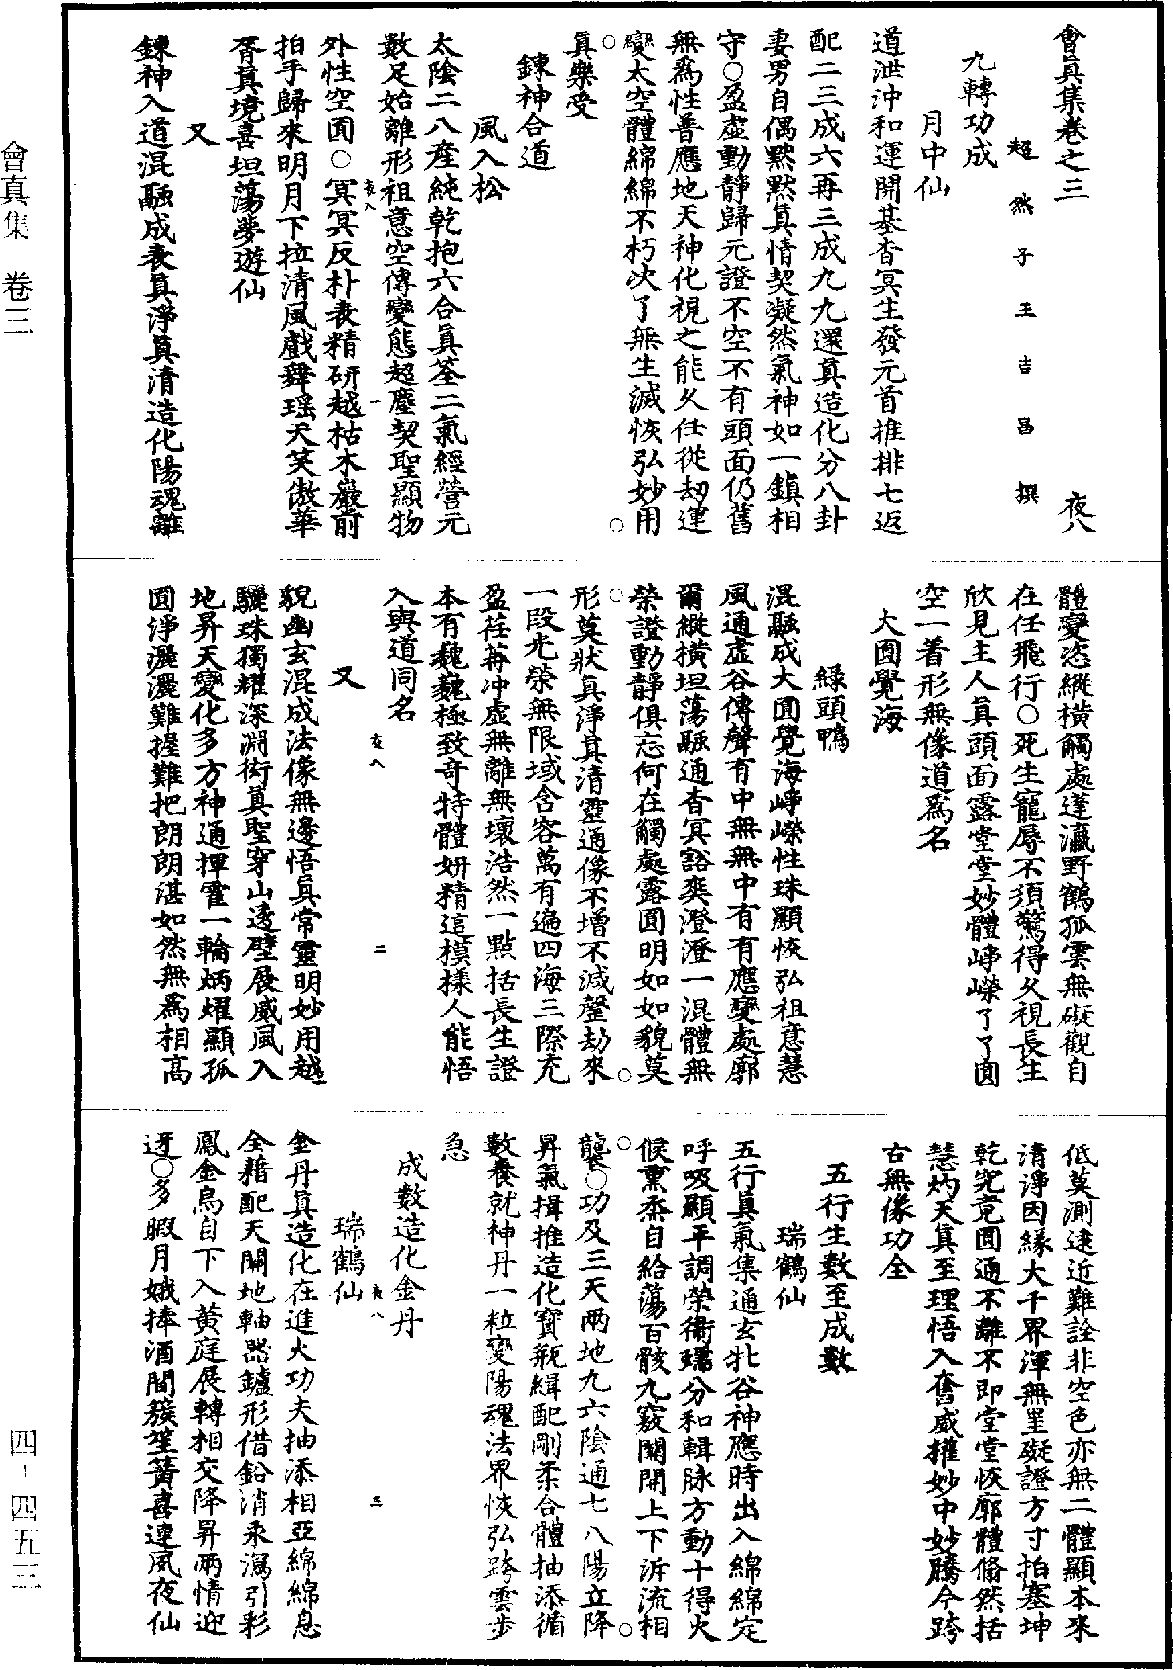 會真集卷之三 夜八
超然子王吉昌撰
九轉功成
月中仙
道泄沖和運開基杳冥生發元首推排七返
配二三成六再三成九九還真造化分八卦
妻男自偶默默真情契凝然氣神如一鎮相
守○盈虛動靜歸元證不空不有頭面仍舊
無為性普應地天神化視之能久任從劫運
變太空體綿綿不朽次了無生滅恢弘妙用
真樂受
鍊神合道
風入松
太陰二八產純乾抱六合真筌二氣經營元
數足始離形祖意空傳變態超塵契聖顯物
外性空圓○冥冥反朴表精研越枯木巖前
拍手歸來明月下拉清風戲舞瑤天笑傲華
胥真境喜坦蕩夢遊仙
又
鍊神入道混融成表真淨真清造化陽魂離
體變恣縱橫觸處達瀛野鶴孤雲無礙觀自
在任飛行○死生寵辱不須驚得久視長生
欣見主人真頭面露堂堂妙體崢嶸了了圓
空一著形無像道為名
大圓覺海
綠頭鴨
混融成大圓覺海崢嶸性珠顯恢弘祖意慧
風通虛谷傳聲有中無無中有有應變處廓
爾縱橫坦蕩融通杳冥豁爽澄澄一混體無
榮證動靜俱忘何在觸處露圓明如如貌莫
形莫狀真淨真清靈通像不增不減罄劫來
一段光榮無限域含容萬有遍四海三際充
盈荏苒冲虛無離無壞浩然一點括長生證
本有巍巍極致奇特體妍精這模樣人能悟
入與道同名
又
貌幽玄混成法像無邊悟真常靈明妙用越
驪珠獨耀深淵術真聖穿山透壁展威風入
地昇天變化多方神通揮霍一輪炳燿顯孤
圓淨灑灑難握難把朗朗湛如然無為相高
低莫測遠近難詮非空色亦無二體顯本來
清淨因緣大千界渾無罣礙證方寸拍塞坤
乾究竟圓通不離不即堂堂恢廓體翛然括
慧灼天真至理悟入奮威權妙中妙騰今跨
古無像功全
五行生數至成數
瑞鶴仙
五行真氣集通玄牝谷神應時出入綿綿定
呼吸顯平調榮衛瓓分和輯脉方動十得火
候熏烝自給蕩百骸九竅關開上下泝流相
襲○功及三天兩地九六陰通七八陽立降
昇氣揖推造化寶瓶緝配剛柔合體抽添循
數養就神丹一粒變陽魂法界恢弘跨雲步
急
成數造化金丹
瑞鶴仙
金丹真造化在進火功夫抽添相亞綿綿息
全藉配天關地軸器鑪形借鉛消汞瀉引彩
鳳金烏自下入黃庭展轉相交降昇兩情迎
迓○多暇月娥捧酒間簇笙簧喜連夙夜仙
會真集 卷三
四-四五三